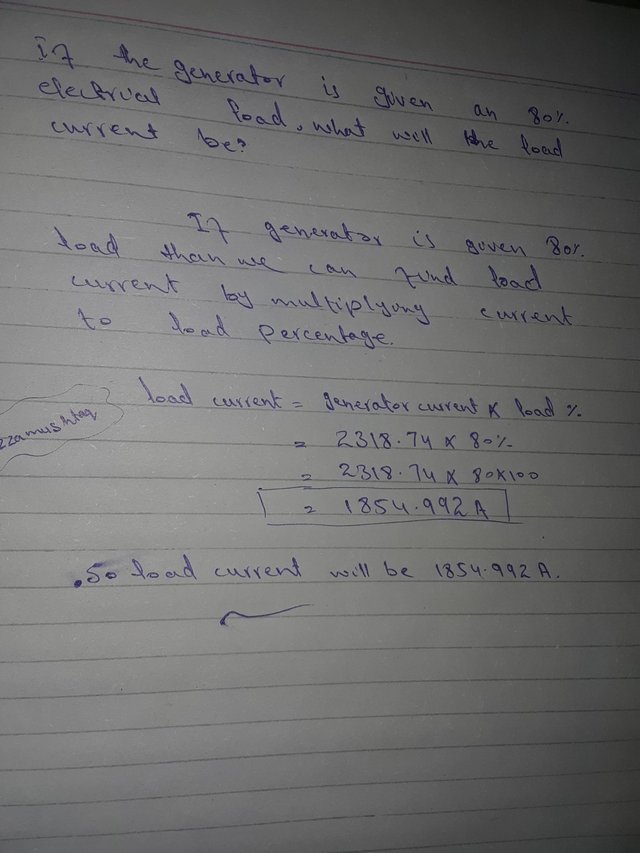 If the generator is given an 80%
electrical load, what will the load
current be?
If generator is given 80%
load than we can find load
current by multiplying current
to load percentage.
load current = generator current x load %
= 2318.74 x 80%
= 2318.74 x 80x100
= 1854.992 A
zzamushtaq
.So load current will be 1854.992 A.